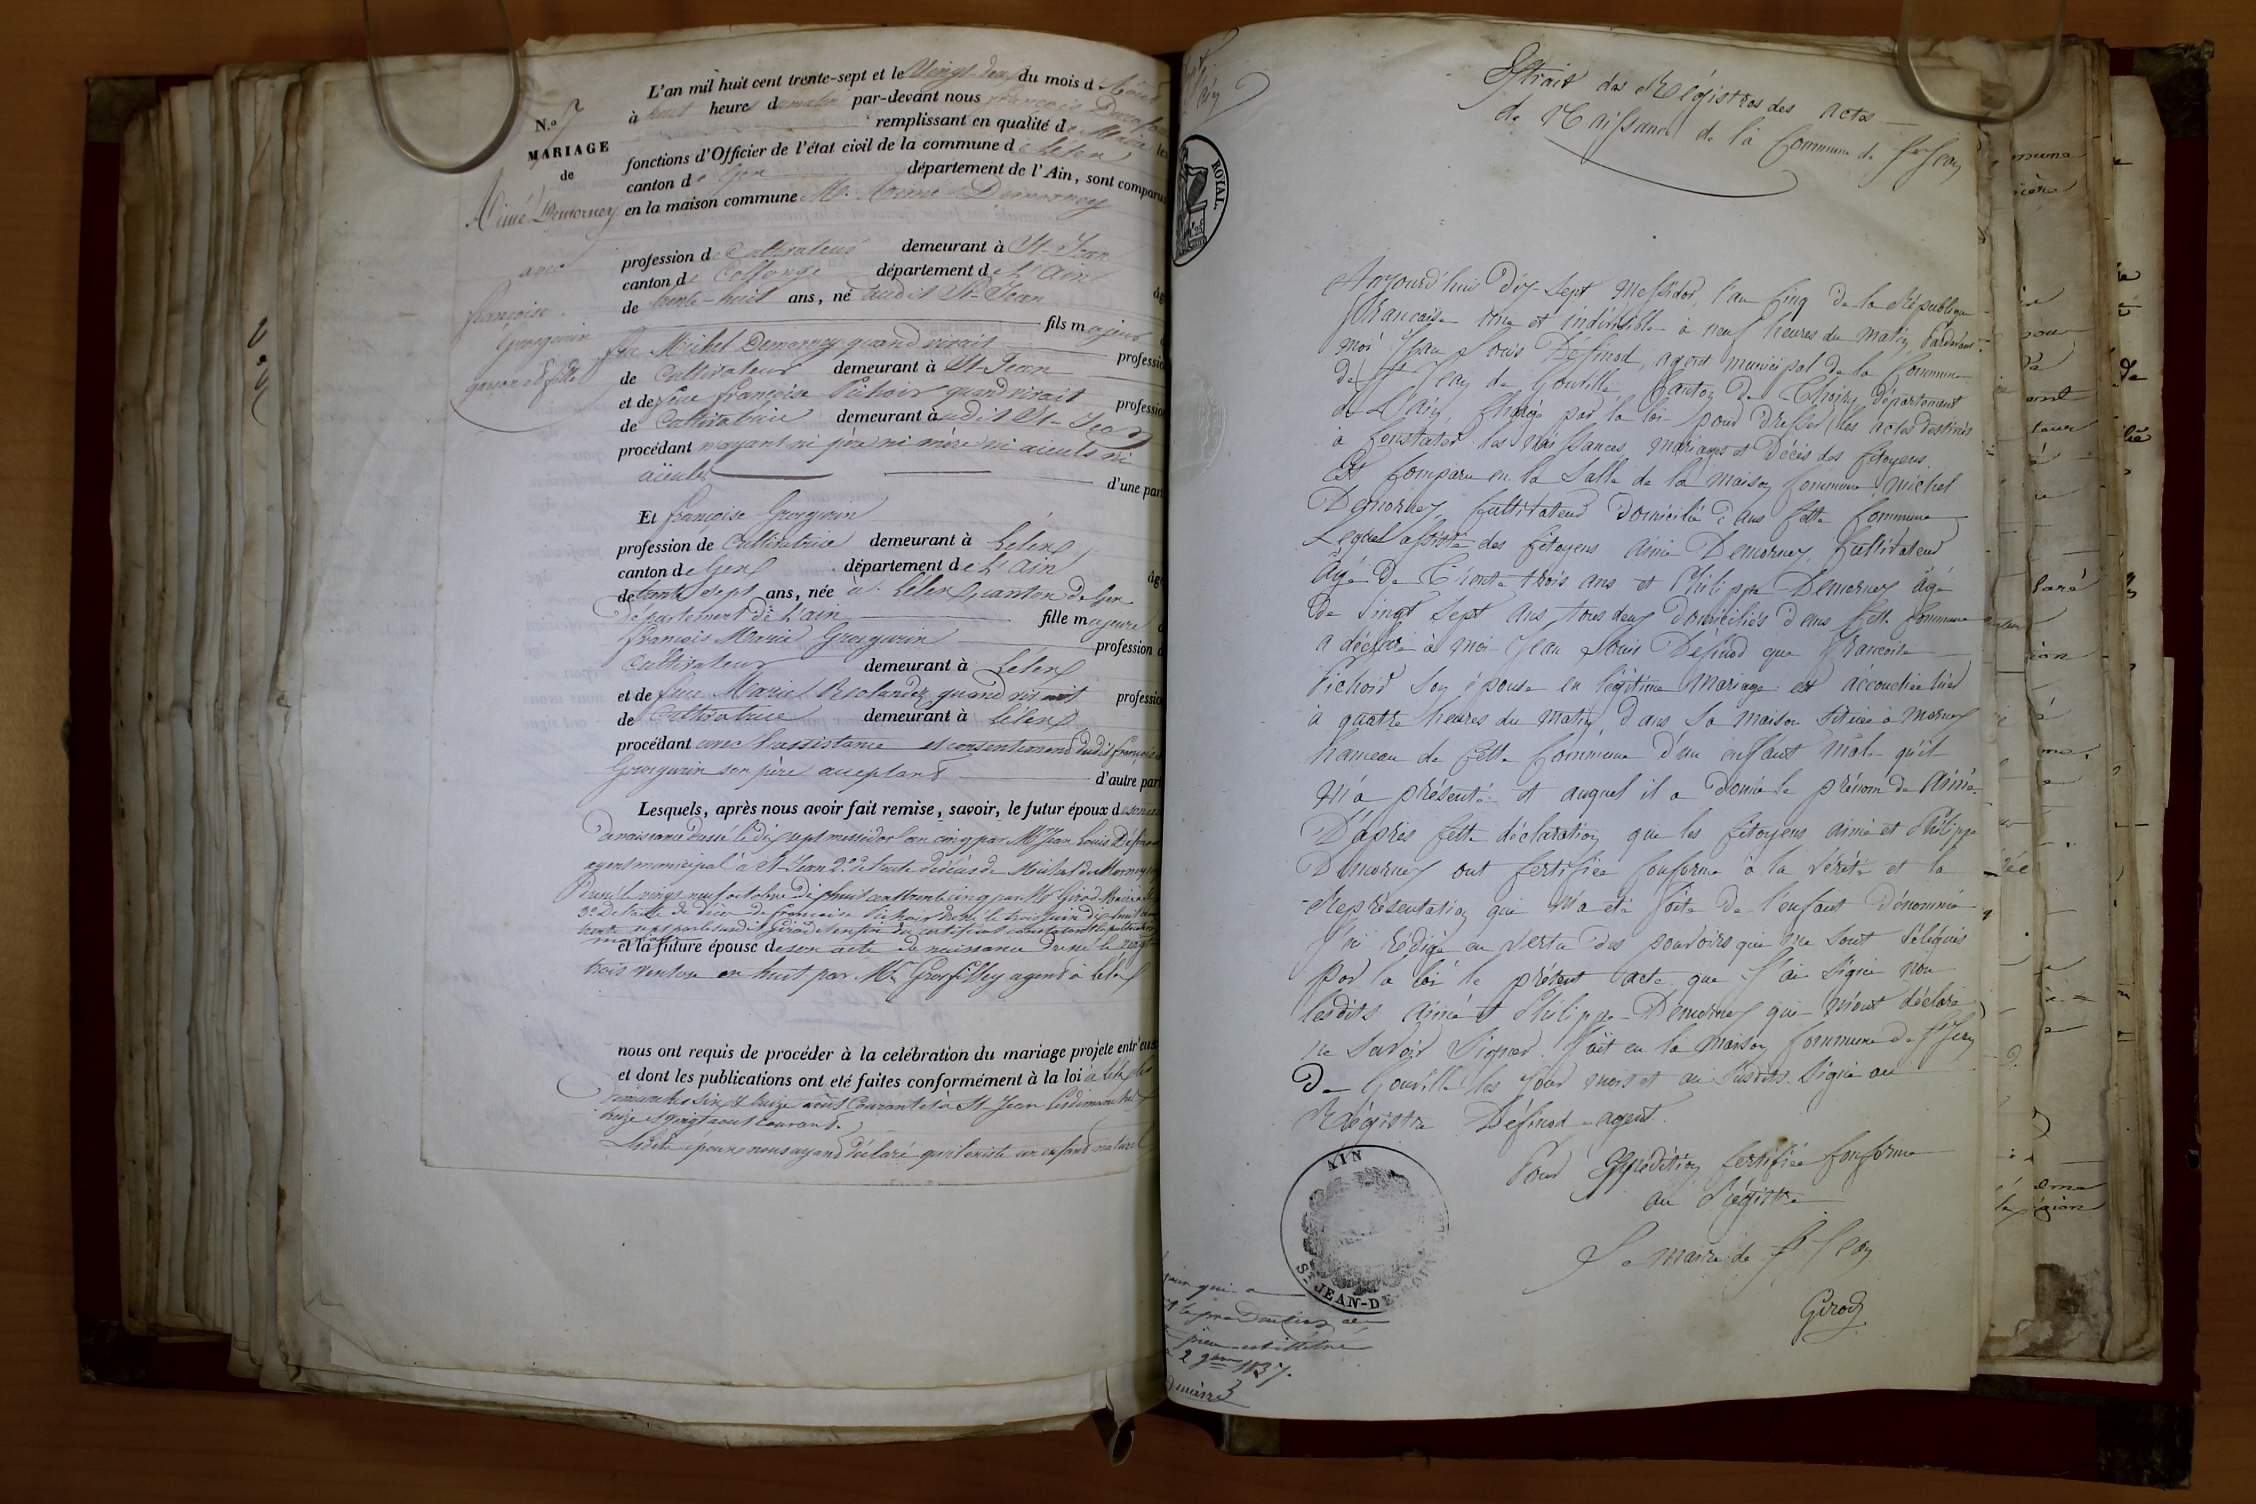 N.o 7
MARIAGE
de
Aimé Demornex
avec
françoise
Grosgurin
garçon et fille
L'an mil huit cent trente-sept et le Vingt-deux du mois d'Aout
à huit heure du matin par-devant nous françois
remplissant en qualité de Maire les
fonctions d'Officier de l'état civil de la commune de Lélex
canton de Gex département de l'Ain, sont comparus
en la maison commune Mr. Aimé Demornex
profession de Cultivateur demeurant à St-Jean
canton de Collonge département de L'Ain âgé
de trente-huit ans, né audit St-Jean
fils majeur d
feu Michel Demornex quand vivait profession
de Cultivateur demeurant à St-Jean
et de feue françoise Pichoir quand vivait profession
de Cultivatrice demeurant audit St-Jean
procédant n'ayant ni père ni mère ni aieuls ni
aieules d'une part
Et françoise Grosgurin
profession de Cultivatrice demeurant à Lélex
canton de Gex département de L'Ain âgé
de trente sept ans, née à Lélex canton de Gex
département de L'ain fille majeure d
françois Marie Grosgurin profession d
Cultivateur demeurant à Lélex
et de feue Marie quand vivait profession
de Cultivatrice demeurant à Lélex
procédant avec l'assistance et consentement dudit françois
Grosgurin son père acceptant d'autre part
Lesquels, après nous avoir fait remise, savoir, le futur époux de son acte
de naissance dressé le dix sept messidor an cinq par Mr Jean Louis Définod
agent municipal à St-Jean 2o de l'acte de décès de Michel Demornex
Dressé le vingt neuf octobre dix huit cent trente cinq par Mr Girod Maire
3o De l'acte de décès de françoise Pichoir dressé le trois juin dix huit cent
trente sept par le susdit Girod et enfin du certificat constatant la publication
et la future épouse de son acte de naissance dressé le vingt
trois ventose an huit par Mr Grosfilley agent à Lélex
nous ont requis de procéder à la celébration du mariage projeté entr'eux
et dont les publications ont eté faites conformément à la loi à Lélex les
dimanches six et treize aout Courant et à St-Jean les dimanches
treize et vingt aout courant
Lesdits époux nous ayant déclaré qu'il existe un enfant naturel
ROYAL
Extrait des Régistres des actes
de Naissance de la Commune de St Jean
Aujourd'hui Dix-sept Messidor, l'an Cinq De la République
française une et indivisible à neuf heures du matin Pardevant
moi Jean Louis Définod, agent municipal de la Commune
de St Jean de Gonville, Canton De Thoiry, département
de L'Ain, Chargé par la loi pour dresser les actes destinés
à Constater les naissances, mariages et Décès des Citoyens
Est Comparu en la Salle de la maison Commune, Michel
Demornex Cultivateur Domicilié dans Cette Commune
Lequel assisté des Citoyens aimé Demornex Cultivateur
âgé De Trente trois ans et Philippe Demornex âgé
de Vingt Sept ans tous deux Domiciliés dans Cette Commune
a déclaré à moi Jean Louis Définod que françoise
Pichoir Son épouse en légitime Mariage est accouchée hier
à quatre heures du matin dans Sa maison Située à Mornex
hameau de Cette Commune d'un enfant mâle qu'il
m'a présenté et auquel il a donné le prénom de Aimé
D'après Cette déclaration que les Citoyens aimé et Philippe
Demornex ont Certifiée Conforme à la Vérité et la
Représentation qui m'a été faite De l'enfant Dénommé
J'ai rédigé en vertu Des pouvoirs qui me Sont Délégués
par la loi le présent acte que J'ai Signé non
lesdits Aimé et Philippe Demornex qui m'ont déclaré
ne Savoir Signer. Fait en la maison Commune de St Jean
De Gonville les Jour mois et an Susdits. Signé au
Régistre Définod agent.
Pour Expédition Certifiée Conforme
au Régistre
Le maire de St Jean
Girod
AIN
ST JEAN-DE-GONVILLE
1837.